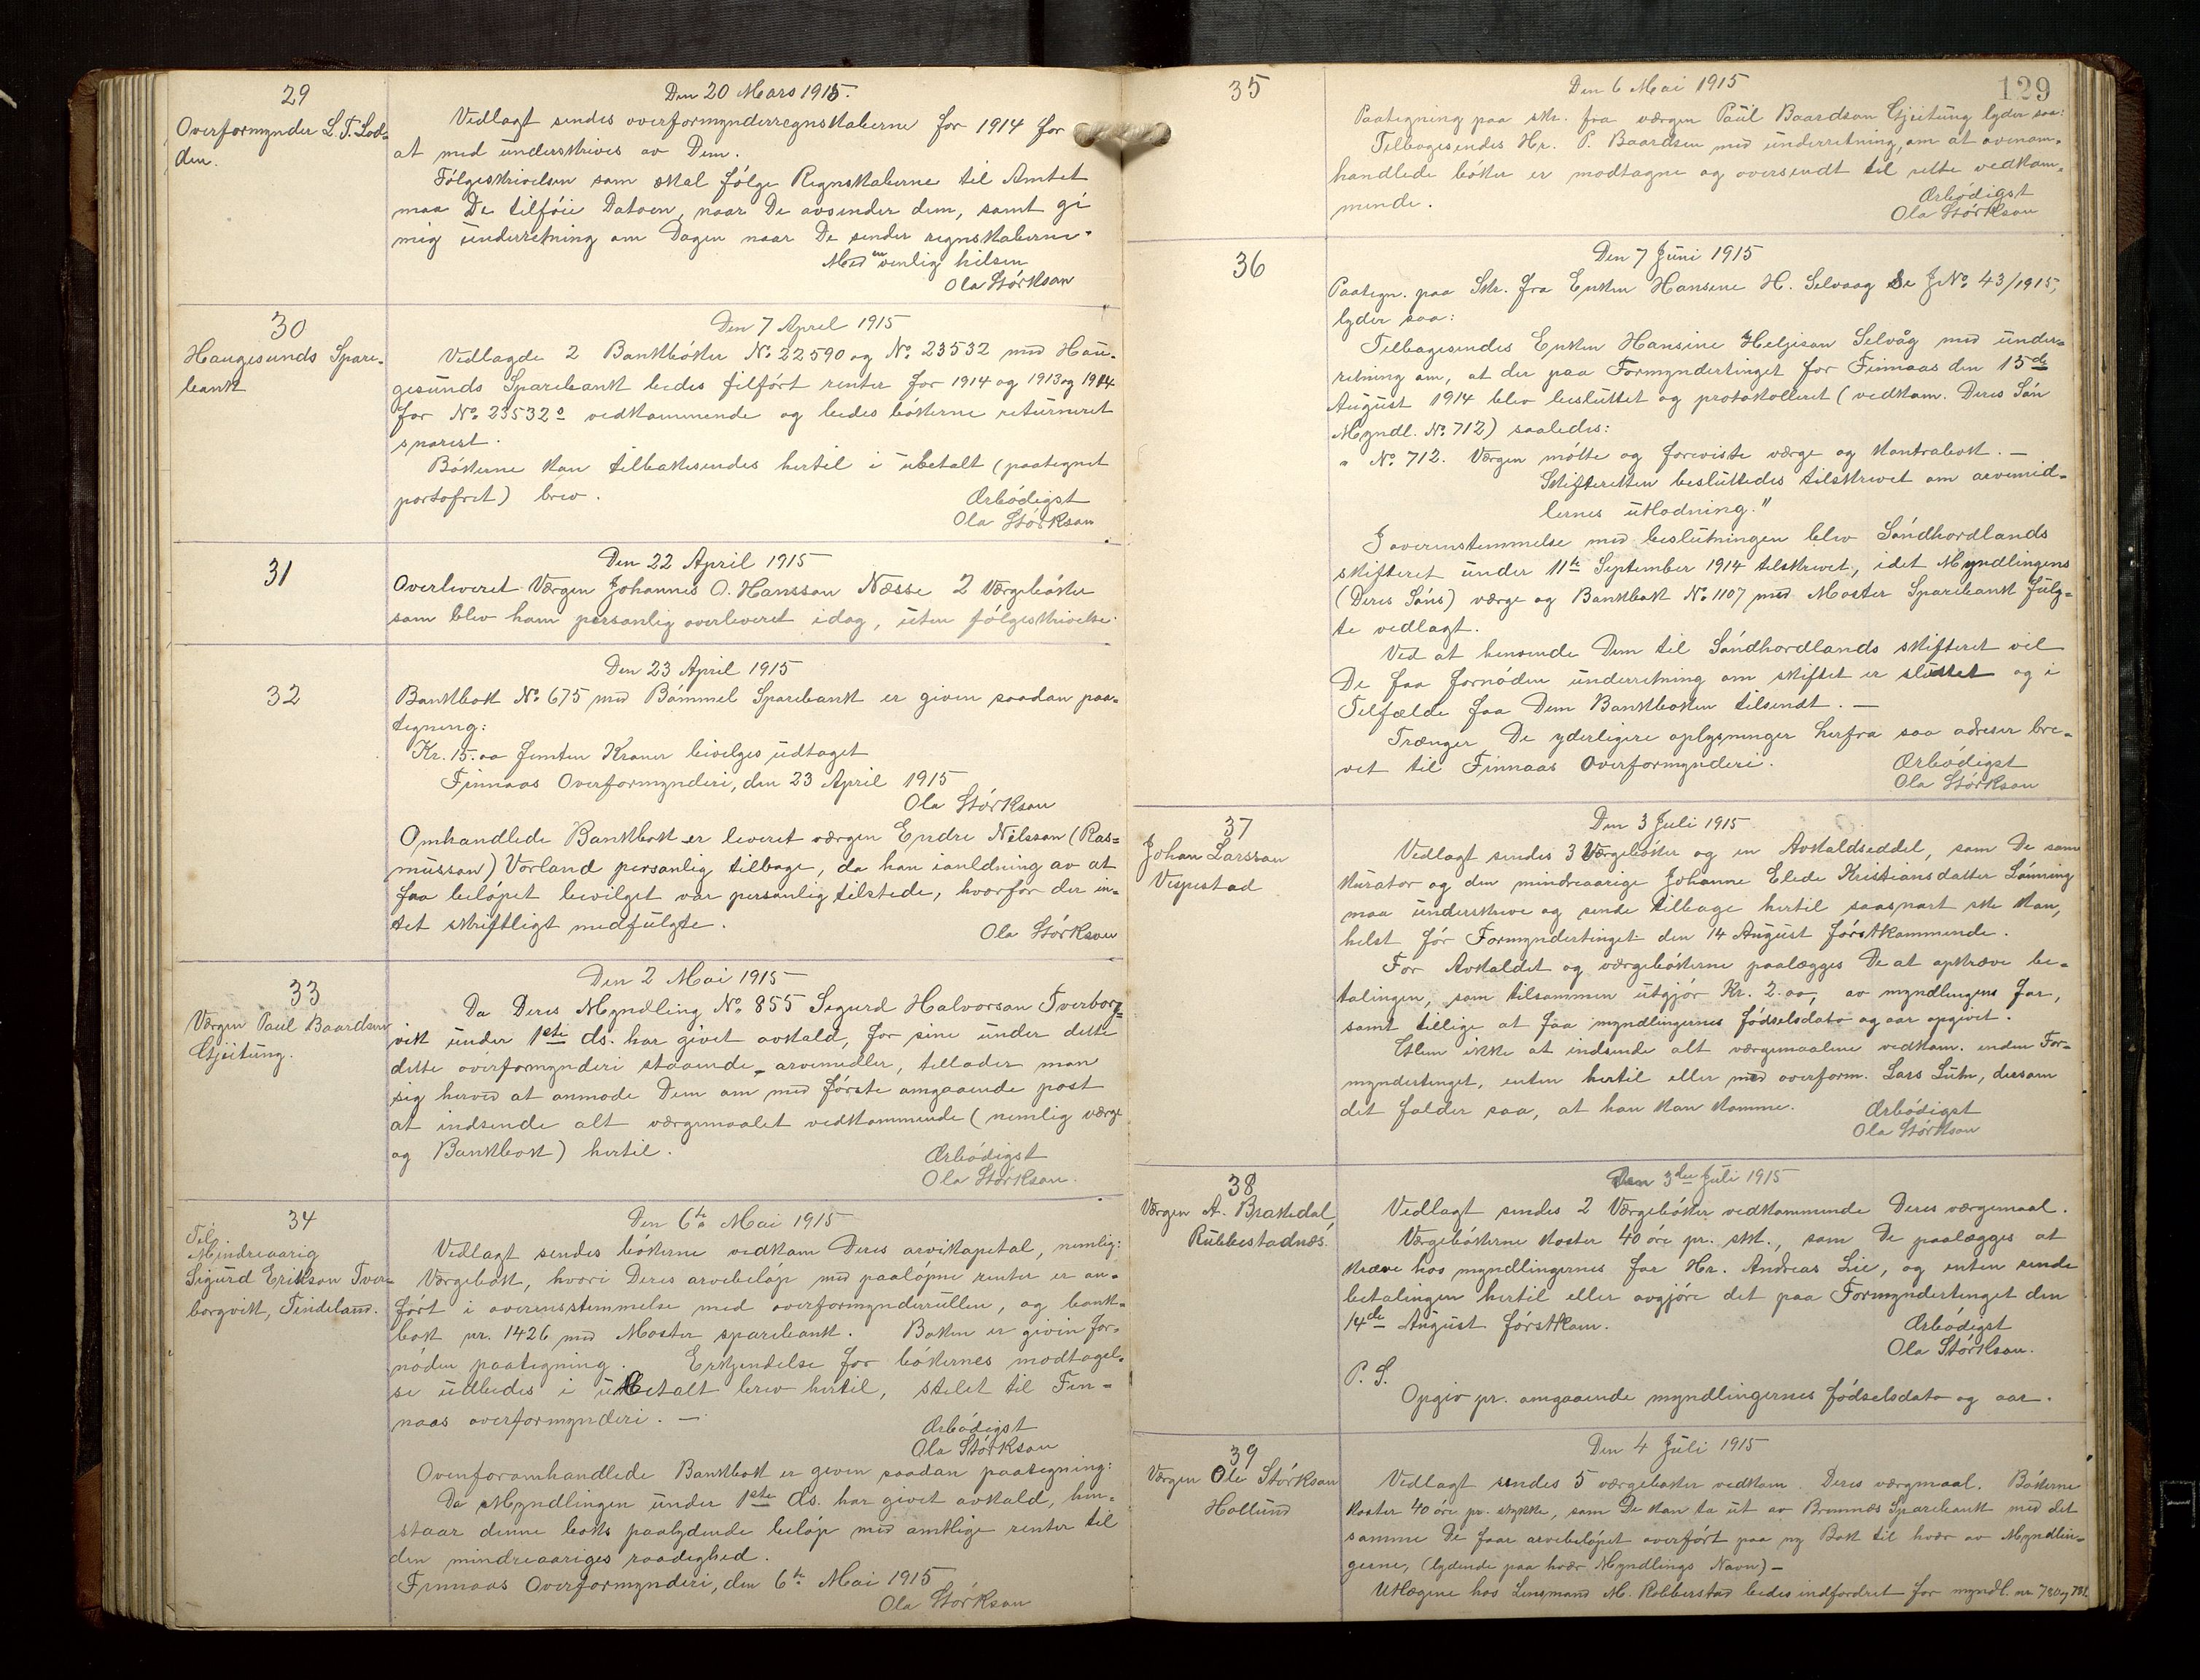 29
Overformynder L. T. Lod-
den.
Den 20 Mars 1915.
Vedlagt sendes overformynderregnskaberne for 1914 for
at med underskrives av Dem.
Følgeskrivelsen som skal følge Regnskaberne til Amtet
maa De tilføie Datoen, naar De avsender dem, samt gi
mig underretning om Dagen naar De sender regnskaberne.
Med venlig hilsen
Ola Størkson
30
Haugesunds Spare-
bank
Den 7 April 1915
Vedlagde 2 Bankbøker No 22590 og No 23532 med Hau-
gesunds Sparebank bedes tilført renter for 1914 og 1913 og 1914
for No 23532 vedkommende og bedes bøkerne returneret
snarest.
Bøkerne kan tilbakesendes hertil i ubetalt (paategnet
portofret) brev.
Ærbødigst
Ola Størkson
31
Den 22 April 1915
Overleveret Værgen Johannes O. Hansson Næsse 2 Værgebøker
som blev ham personlig overleveret idag, uten følgeskrivelse.
32
Den 23 April 1915
Bankbok No 675 med Bømmel Sparebank er given saadan paa-
tegning:
Kr. 15.00 femten Kroner bevilges udtaget
Finnaas Overformynderi, den 23 April 1915
Ola Størkson
Omhandlede Bankbok er leveret værgen Endre Nilsson (Ras-
musson) Vorland personlig tilbage, da han ianldning av at
faa beløpet bevilget var personlig tilstede, hvorfor der in-
tet skriftligt medfulgte.
Ola Størkson
33
Værgen Paul Baardsen
Gjeitung.
Den 2 Mai 1915
Da Deres Myndling No 855 Sigurd Halvorson Tverborg-
vik under 1ste ds. har givet avkald, for sine under dette
dette overformynderi staaende arvemidler, tellader man
sig herved at anmode Dem om med første omgaaende post
at indsende alt værgemaalet vedkommende (nemlig værge
og Bankbok) hertil.
Ærbødigst
Ola Størkson.
34
Til
Mindreaarig
Sigurd Erikson Tver-
borgvik, Tindeland.
Den 6te Mai 1915
Vedlagt sendes bøkerne vedkom Deres arvikapetal, nemlig:
Værgebok, hvori Deres arvebeløp med paaløpne renter er an-
ført i overensstemmelse med overformynderrullen, og bank-
bok nr. 1426 med Moster sparebank. Boken er givin for-
nøden paategning. Erkjendelse for bøkernes modtagel-
se udbedes i ubetalt brev hertil, stelet til Fin-
naas overformynderi. —
Ærbødigst
Ola Størkson
Ovenforomhandlede Bankbok er given saadan paategning:
Da Myndlingen under 1ste ds. har givet avkald, hen-
staar denne boks paalydende beløp med amtlige renter til
den mindreaariges raadighed.
Finnaas Overformynderi, den 6te Mai 1915
Ola Størkson
129
35
Den 6 Mai 1915
Paategning paa skr. fra værgen Paul Baardson Gjeitung lyder saa:
Telbagesendes Hr. P. Baardsen med underretning, om at ovenom-
handlede bøker er modtagne og oversendt til rette vedkom-
mende.
Ærbødigst
Ola Størkson
36
Den 7 Juni 1915
Paategn. paa Skr. fra Enken Hansine H. Selvaag Se J No. 43/1915,
lyder saa:
Telbagesendes Enken Hansine Helgison Selvåg med under-
retning om, at der paa Formyndertinget for Finnaas den 15de
August 1914 blev besluttet og protokolleret (vedkom. Deres Søn
Myndl. No. 712) saaledes:
" No. 712. Værgen møtte og foreviste værge og kontrabok. —
Skifteretten besluttedes tilskrevet om arvemid-
lernes utlodning."
I overenstemmelse med beslutningen blev Søndhordlands
skifteret under 11te September 1914 tilskrevet, idet Myndlingens
(Deres Søns) værge og Bankbok No. 1107 med Moster Sparebank fulg-
te vedlagt.
Ved at henvende Dem til Søndhordlands skifteret vil
De faa fornøden underretning om skiftet er sluttet og i
Telfælde faa Dem Bankboken tilsendt. —
Trænger De yderligere oplysninger herfra saa adreser bre-
vet til Finnaas Overformynderi.
Ærbødigst
Ola Størkson
37
Johan Larsson
Vespestad
Den 3 Juli 1915
Vedlagt sendes 3 Værgebøker og en Avkaldseddel, som De som
kurator og den mindreaarige Johanne Elede Kristiansdatter Lønning
maa underskrive og sende tilbage hertil saasnart ske kan,
helst før Formyndertinget den 14 August førstkommende.
For Avkaldet og værgebøkerne paalægges De at opkræve be-
talingen, som tilsammen utgjør Kr. 2.00, av myndlingens far,
samt tillige at faa myndlingernes fødselsdato og aar opgivet.
Glem ikke at indsende alt værgemaalene vedkom. inden For-
myndertinget, enten hertil eller med overform. Lars Lutn, dersom
det falder saa, at han kan komme.
Ærbødigst
Ola Størkson
38
Værgen A. Brakedal
Rubbestadnes.
Den 3die Juli 1915
Vedlagt sendes 2 Værgebøker vedkommende Deres værgemaal.
Værgebøkerne koster 40 øre pr. stk., som De paalægges at
kræve hos myndlingernes far Hr. Andreas Lie, og enten sende
betalingen hertil eller avgjøre det paa Formyndertinget den
14de August førstkom.
Ærbødigst
Ola Størkson.
P. S.
Opgiv pr. omgaaende myndlingernes fødselsdato og aar.
39
Værgen Ole Størkson
Hollund
Den 4 Juli 1915
Vedlagt sendes 5 værgebøker vedkom Deres værgmaal. Bøkerne
koster 40 øre pr. stykke, som De kan ta ut av Bremnes Sparebank med det
samme De faar arvebeløpet overført paa ny Bok til hvær av Myndlin-
gerne, (lydende paa hvær Myndlings Navn) —
Utlægene hos Linsmand M. Robberstad bedes indfordret for myndl. nr 780 og 781